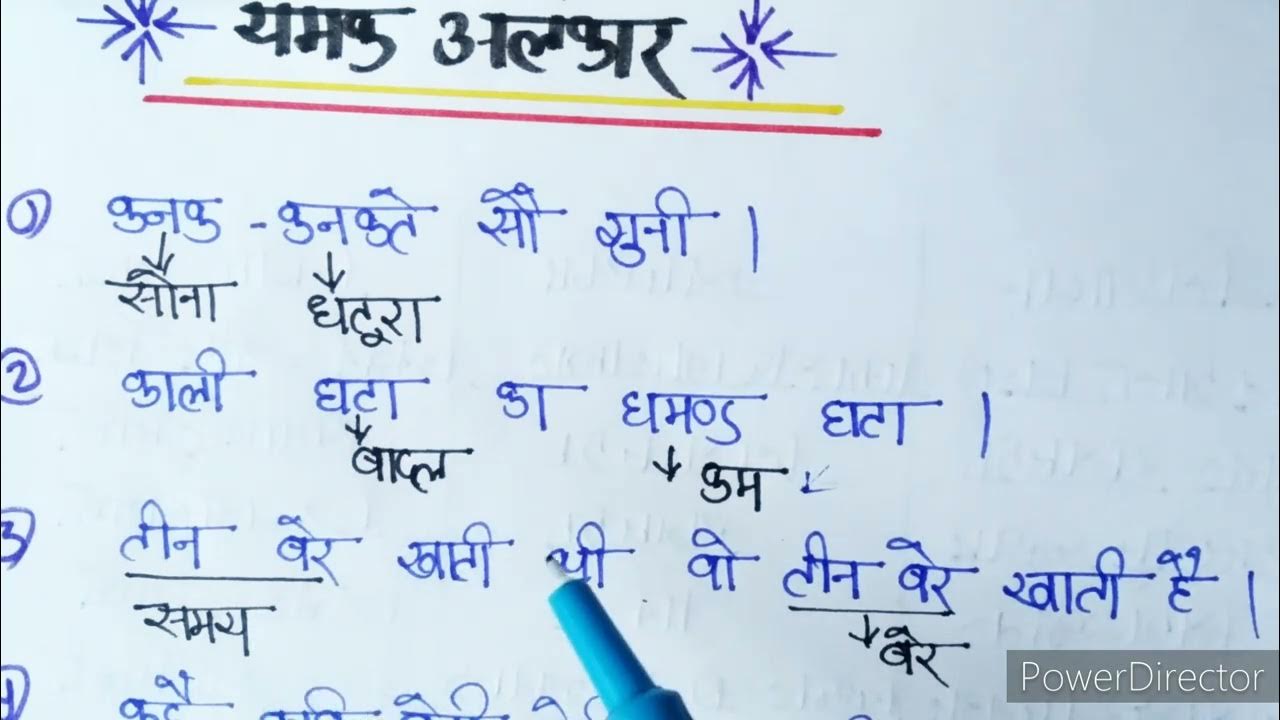 यमक अलकार
① कनक - कनकते सौ गुनी |
सोना धतूरा
② काली घटा का घमण्ड घटा |
बादल कम
3 तीन बेर खाती थी वो तीन बेर खाती है |
समय बेर
4 कहै कवि बेनी
PowerDirector